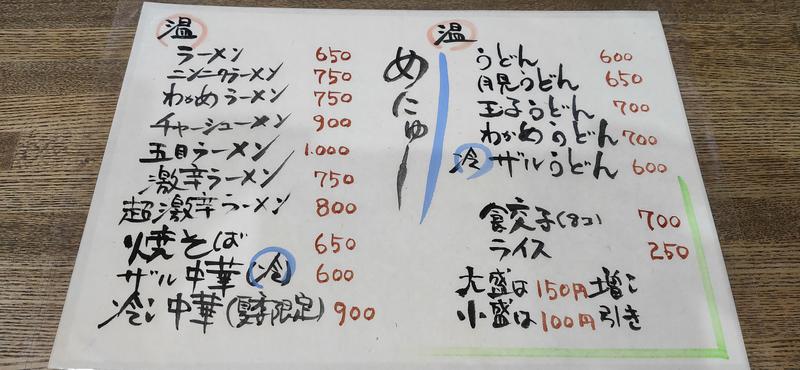 めにゅー
温
ラーメン 650
ニンニクラーメン 750
わかめラーメン 750
チャーシューメン 900
五目ラーメン 1.000
激辛ラーメン 750
超激辛ラーメン 800
焼そば 650
ザル中華(冷) 600
冷し中華(夏季限定) 900
温
うどん 600
月見うどん 650
玉子うどん 700
わかめうどん 700
冷 ザルうどん 600
餃子(8コ) 700
ライス 250
大盛は150円増し
小盛は100円引き